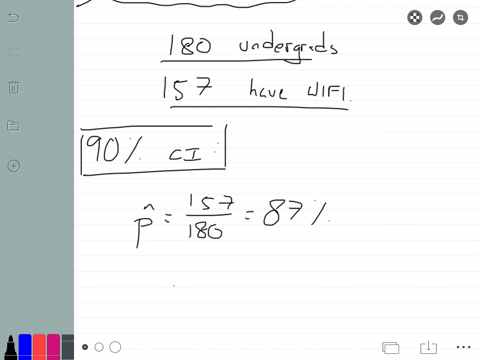 180 undergrads
157 have WIFI.
90% CI
p̂ = 157/180 = 87%